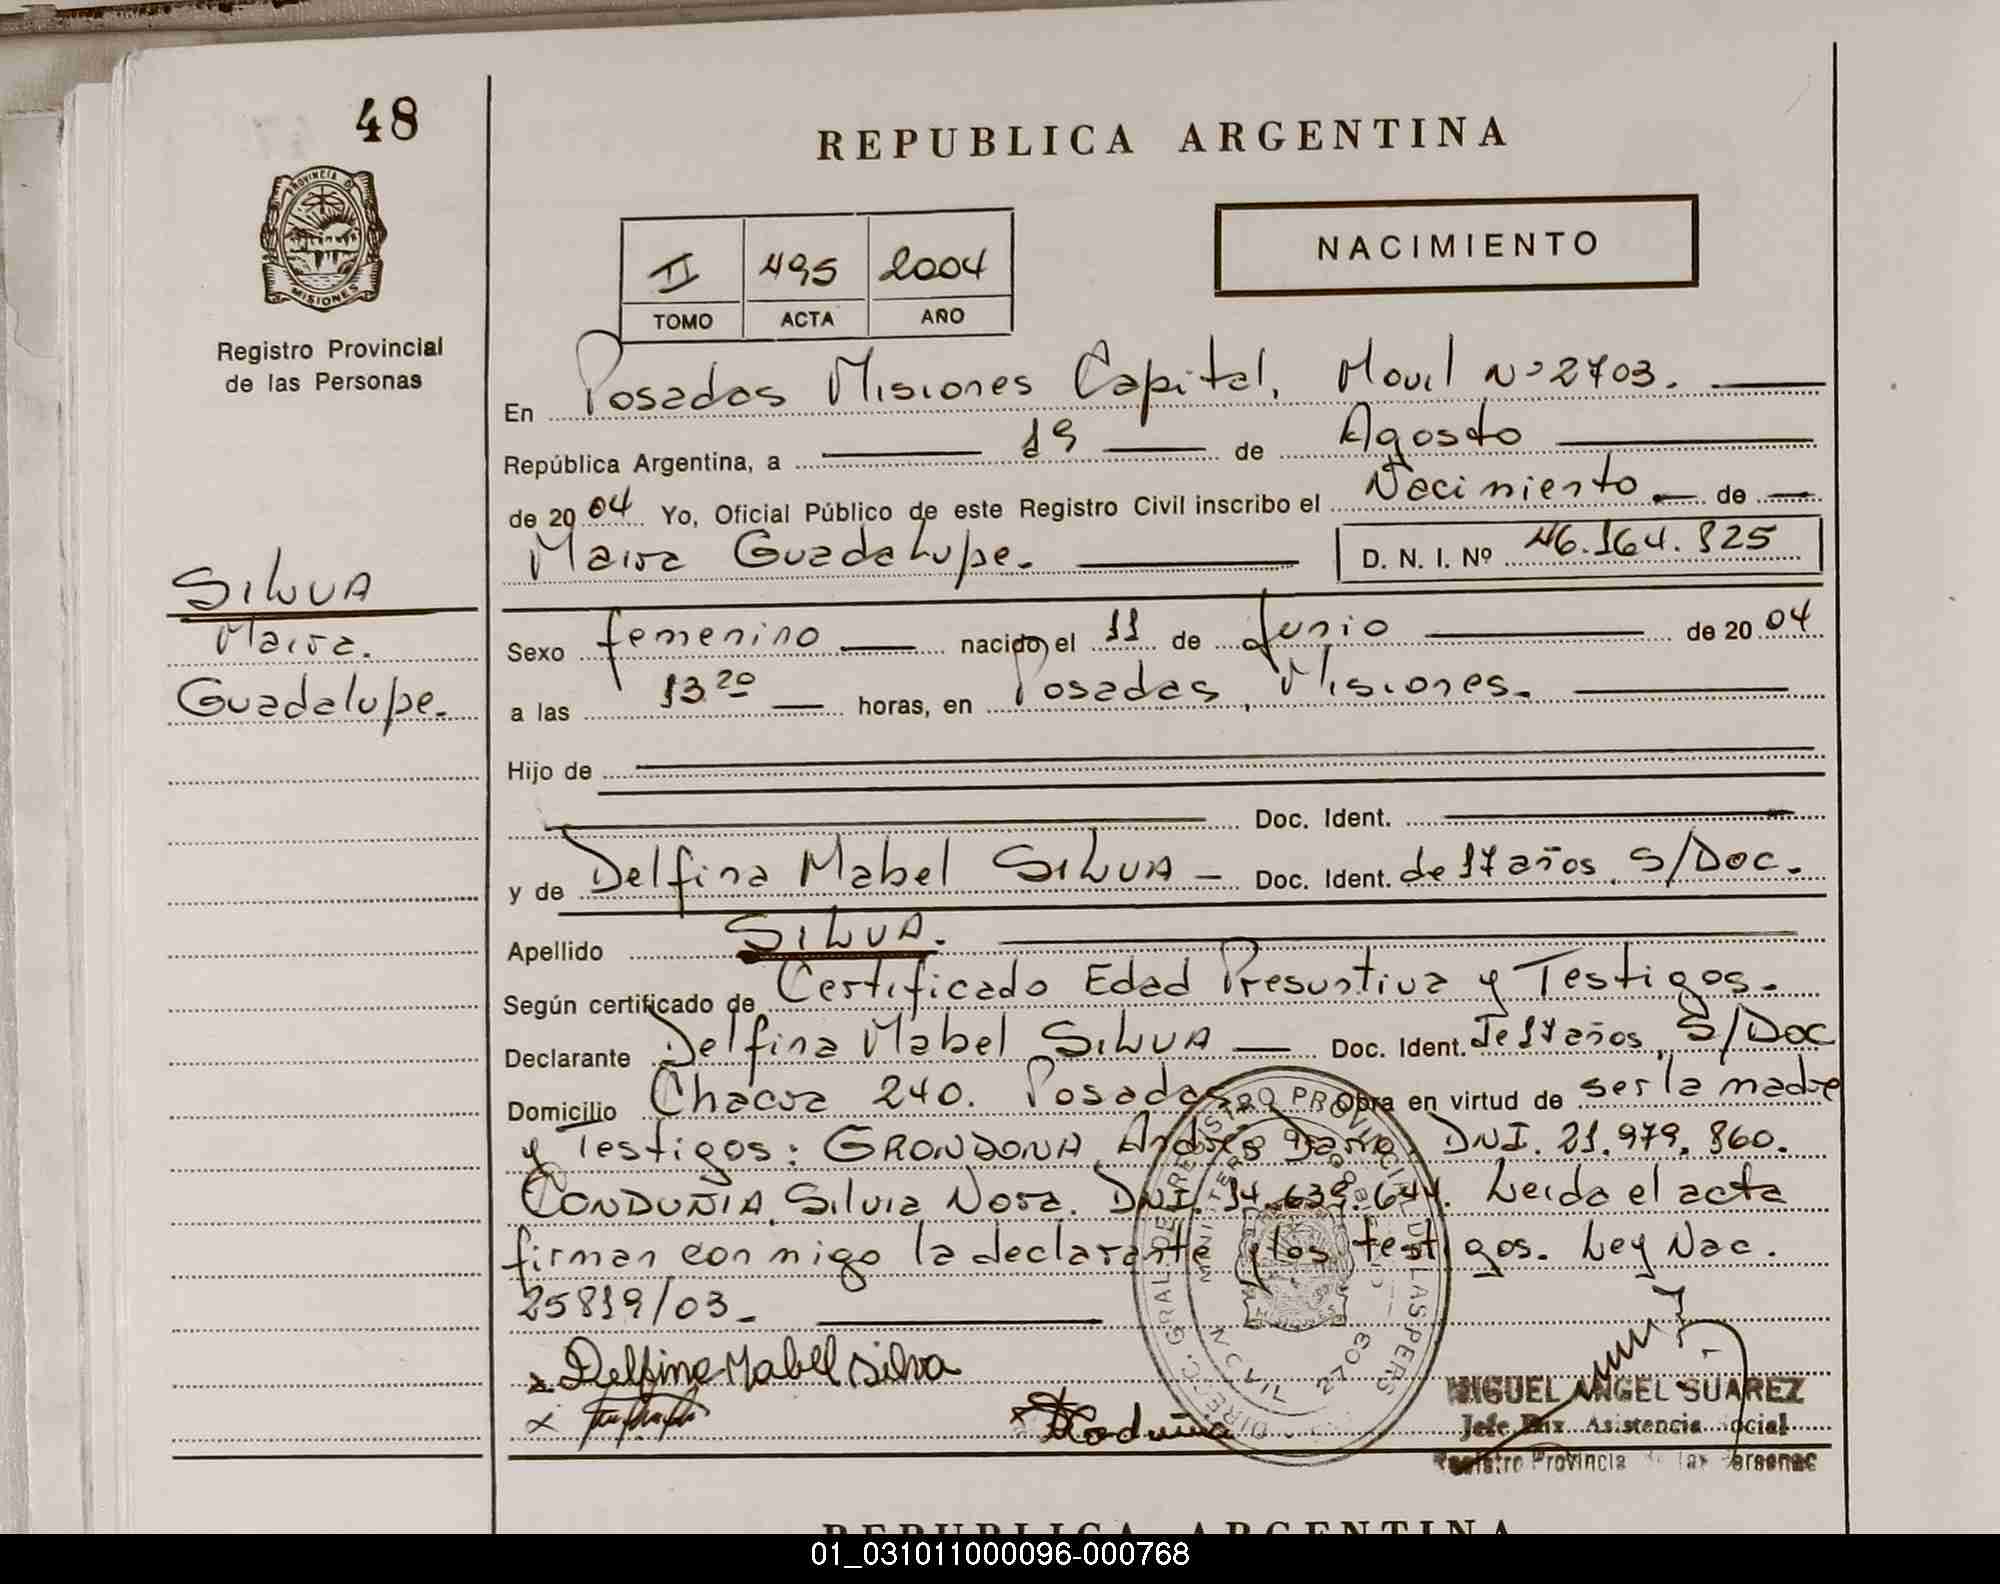 48
REPUBLICA ARGENTINA
PROVINCIA DE
MISIONES
NACIMIENTO
II 495 2004
TOMO ACTA AÑO
Registro Provincial
de las Personas
En Posadas Misiones Capital, Movil Nº 2703.
República Argentina, a 19 de Agosto
de 2004 Yo, Oficial Público de este Registro Civil inscribo el Nacimiento de
Maira Guadalupe. D. N. I. Nº 46.164.825
SILVA
Maira.
Guadalupe.
Sexo femenino nacido el 11 de Junio de 2004
a las 13 20 horas, en Posadas, Misiones.
Hijo de
Doc. Ident.
y de Delfina Mabel SILVA - Doc. Ident. de 17 años, S/Doc.
Apellido SILVA.
Según certificado de Certificado Edad Presuntiva y Testigos.
Declarante Delfina Mabel SILVA Doc. Ident. de 17 años, S/Doc
Domicilio Chacra 240. Posadas Obra en virtud de ser la madre
y Testigos: GRONDONA Andres Dario, DNI. 21.979.860.
CONDUÑIA, Silvia Nora. DNI. 14.639.644. Leida el acta
firman conmigo la declarante y los testigos. Ley Nac.
25819/03_
x Delfina Mabel Silva
x
x
MIGUEL ANGEL SUAREZ
Jefe Asistencia Social
Registro Provincial de las Personas
2703
REPUBLICA ARGENTINA
01_031011000096-000768